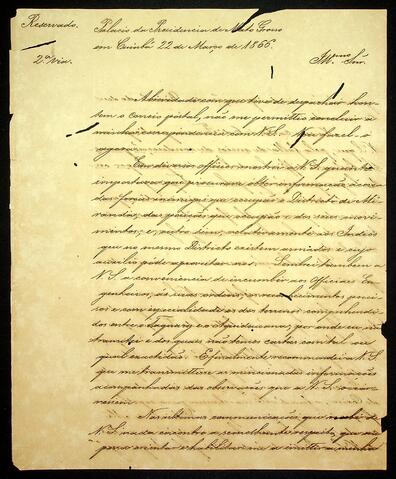 Reservado.
Palacio da Presidencia de Mato Grosso
em Cuiabá 22 de Março de 1866.
2.ª Via.
Ill.mo Snr.
A brevidade com que tive de despachar hon-
tem o correio postal, não me permittio concluir a
minha correspondencia com V.S. Vou fazel-o
agora.
Em diversos officios mostrei a V.S. quanto
importava que procurasse obter informações acerca
das forças inimigas que occupão o Districto de Mi-
randa, das posições que occupão e dos seus movi-
mentos, e, outro sim, relativamente aos Indios
que no mesmo Districto existem armados e cujo
auxilio póde aproveitar-nos. Lembrei tambem a
V.S. a conveniencia de incumbir aos Officiaes En-
genheiros, ás suas ordens, o reconhecimentos preci-
sos e com especialidade os dos terrenos comprehendi-
dos entre o Taquary e o Aquidauana, por onde eu, não
transitei e dos quaes não temos cartas
qual exactidão. E finalmente recommendei a V.S.
que me transmittisse as mencionadas informações
acompanhadas das observações que a V.S. occor-
ressem.
Nas ultimas communicações que recebi de
V.S. nada encontro a semelhante respeito, que me
possa orientar e habilitar-me a emittir a minha